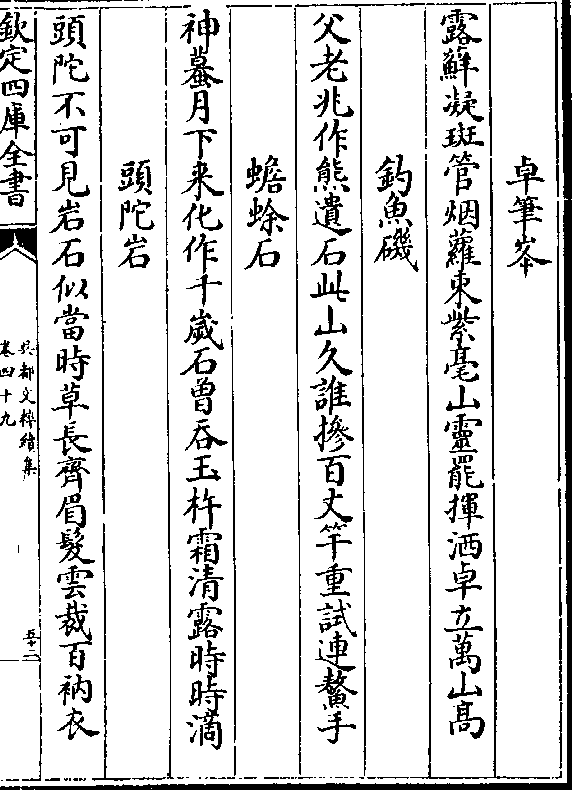 卓筆峯
露蘚凝斑管烟蘿束紫毫山靈罷揮洒卓立萬山髙
釣魚磯
父老兆作熊遺石此山久誰摻百丈竿重試連鰲手
蟾蜍石
神蟇月下来化作千嵗石曽吞玉杵霜清露時時滴
頭陀岩
頭陀不可見岩石似當時草長齊眉髪雲裁百衲衣
欽定四庫全書
吳都文粹續集
卷四十九
五十二